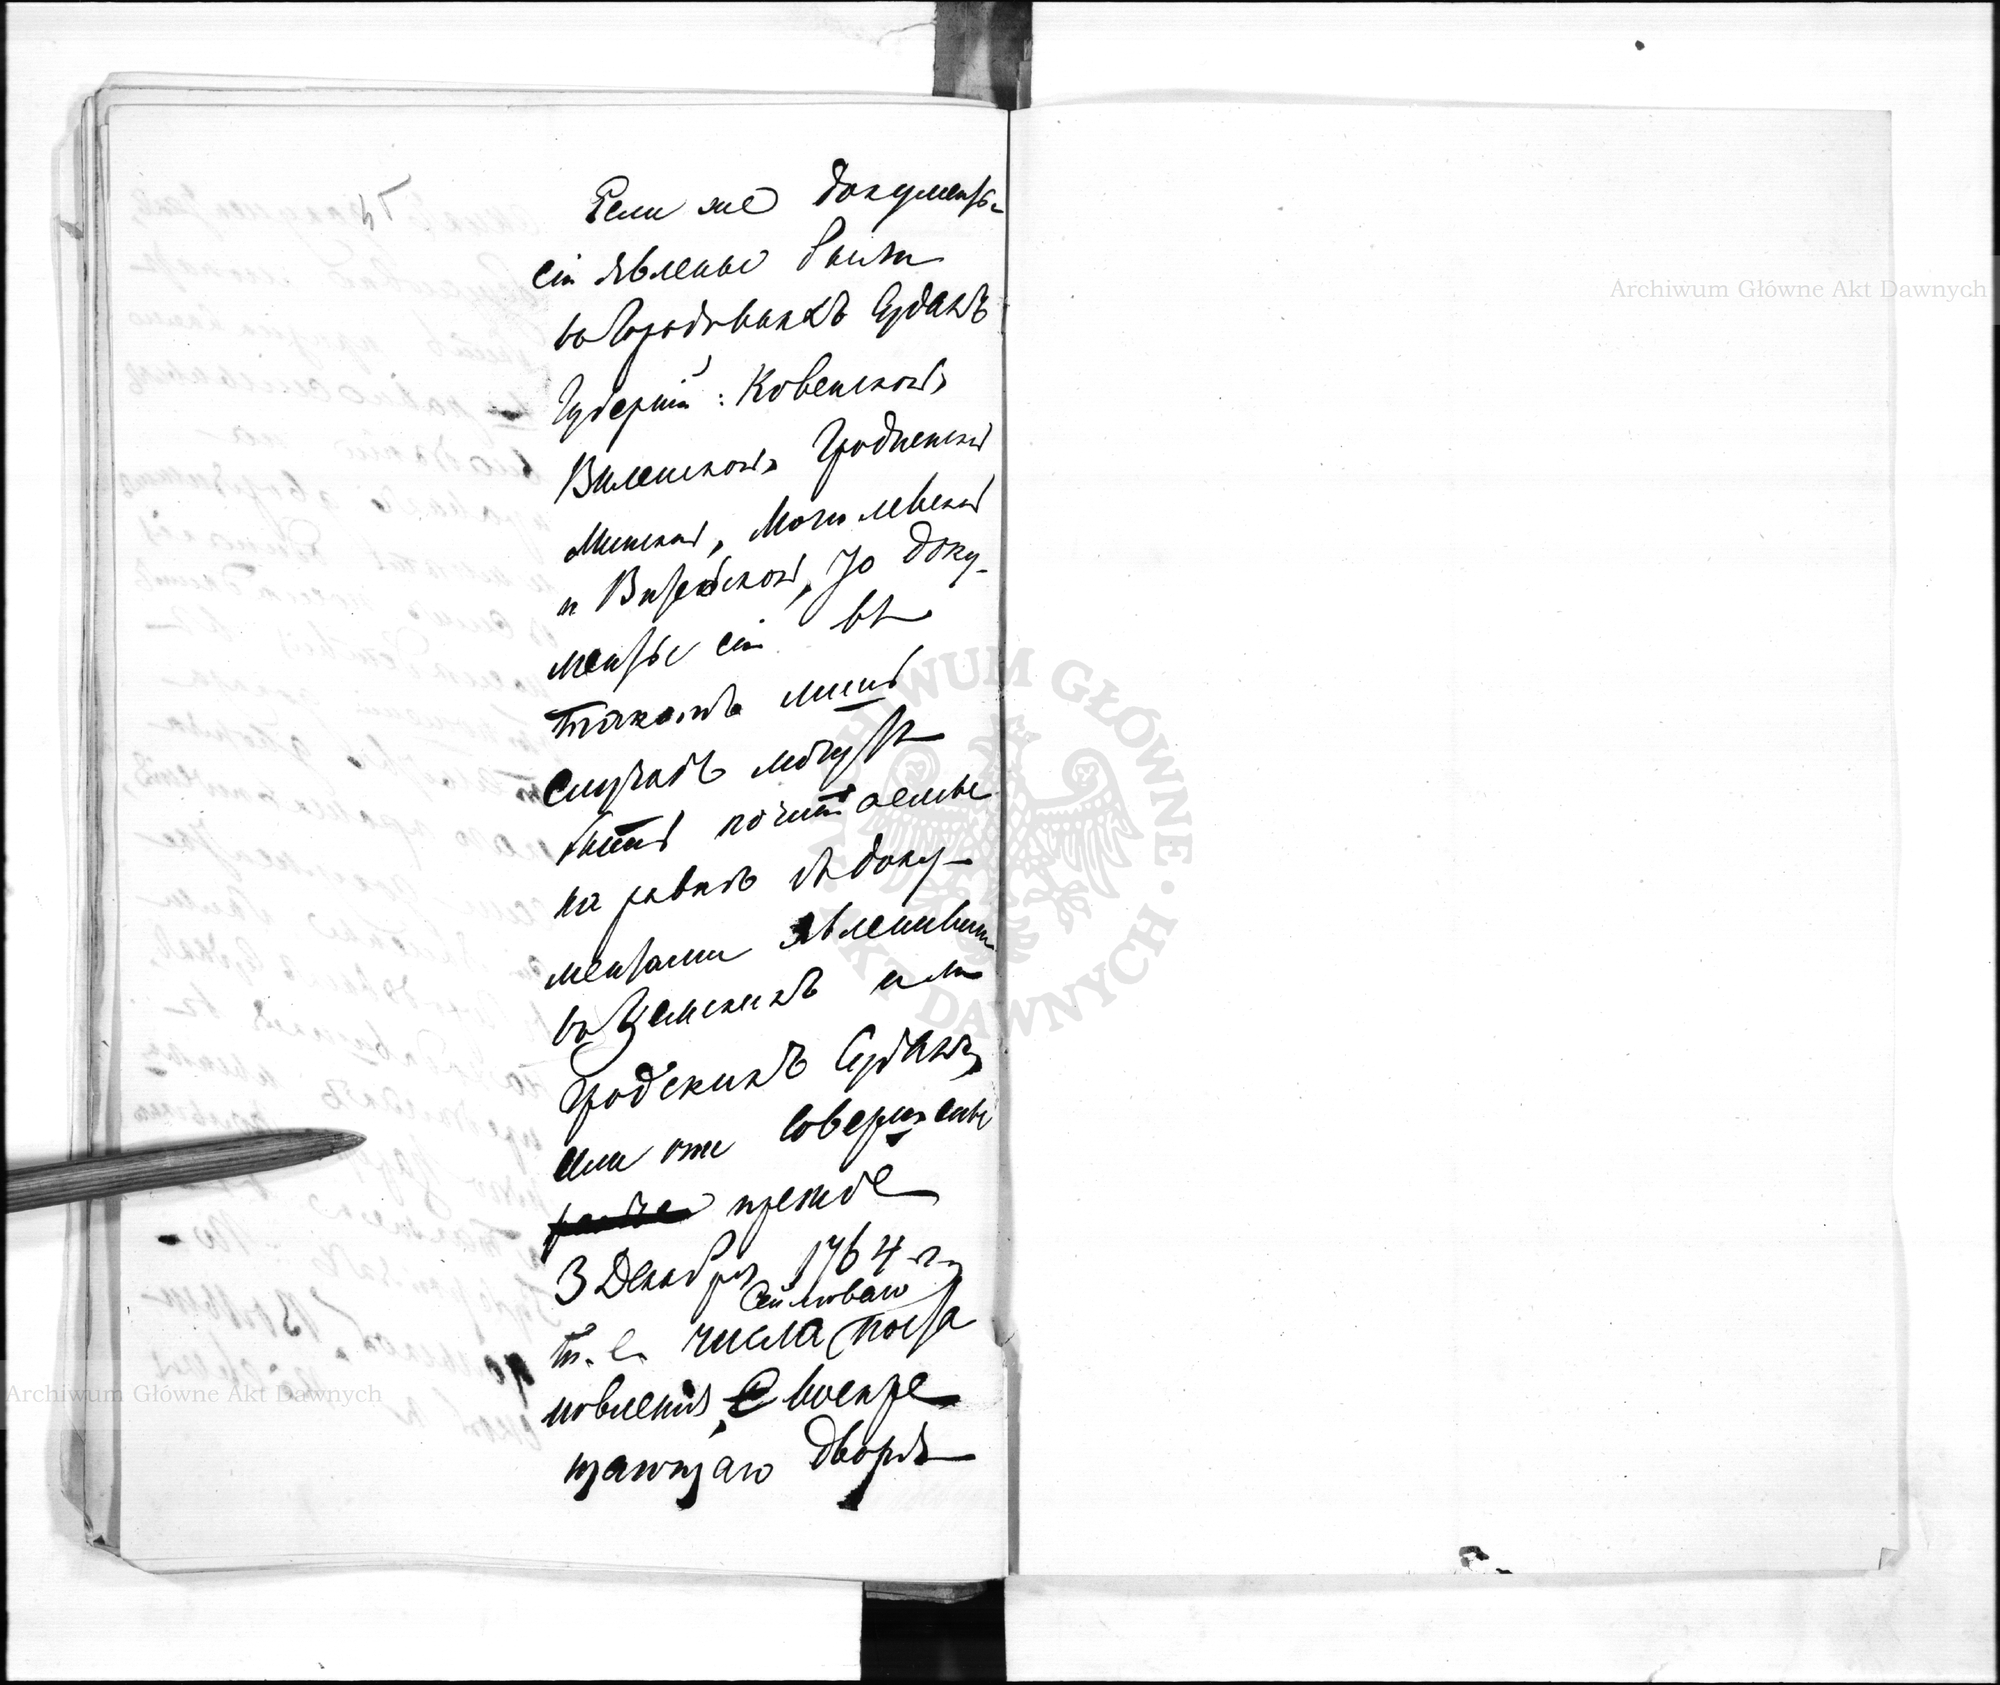 Если же документы
сіи явлены были
въ Городовыхъ Судахъ
Губерній: Ковенской,
Виленской, Гродненской
Минской, Могилевской
и Витебской, то доку-
менты сіи въ
такомъ лишь
случаѣ могутъ
быть почитаемы
на равнѣ съ доку-
ментами явленными
въ Земскихъ или
Гродскихъ Судахъ,
если они совершены
прежде
3 Декабря 1764 г.
Сеймоваго
т. е. числа поста
новленія, воспре
щающаго дворя
Archiwum Główne Akt Dawnych
ARCHIWUM GŁÓWNE AKT DAWNYCH
Archiwum Główne Akt Dawnych